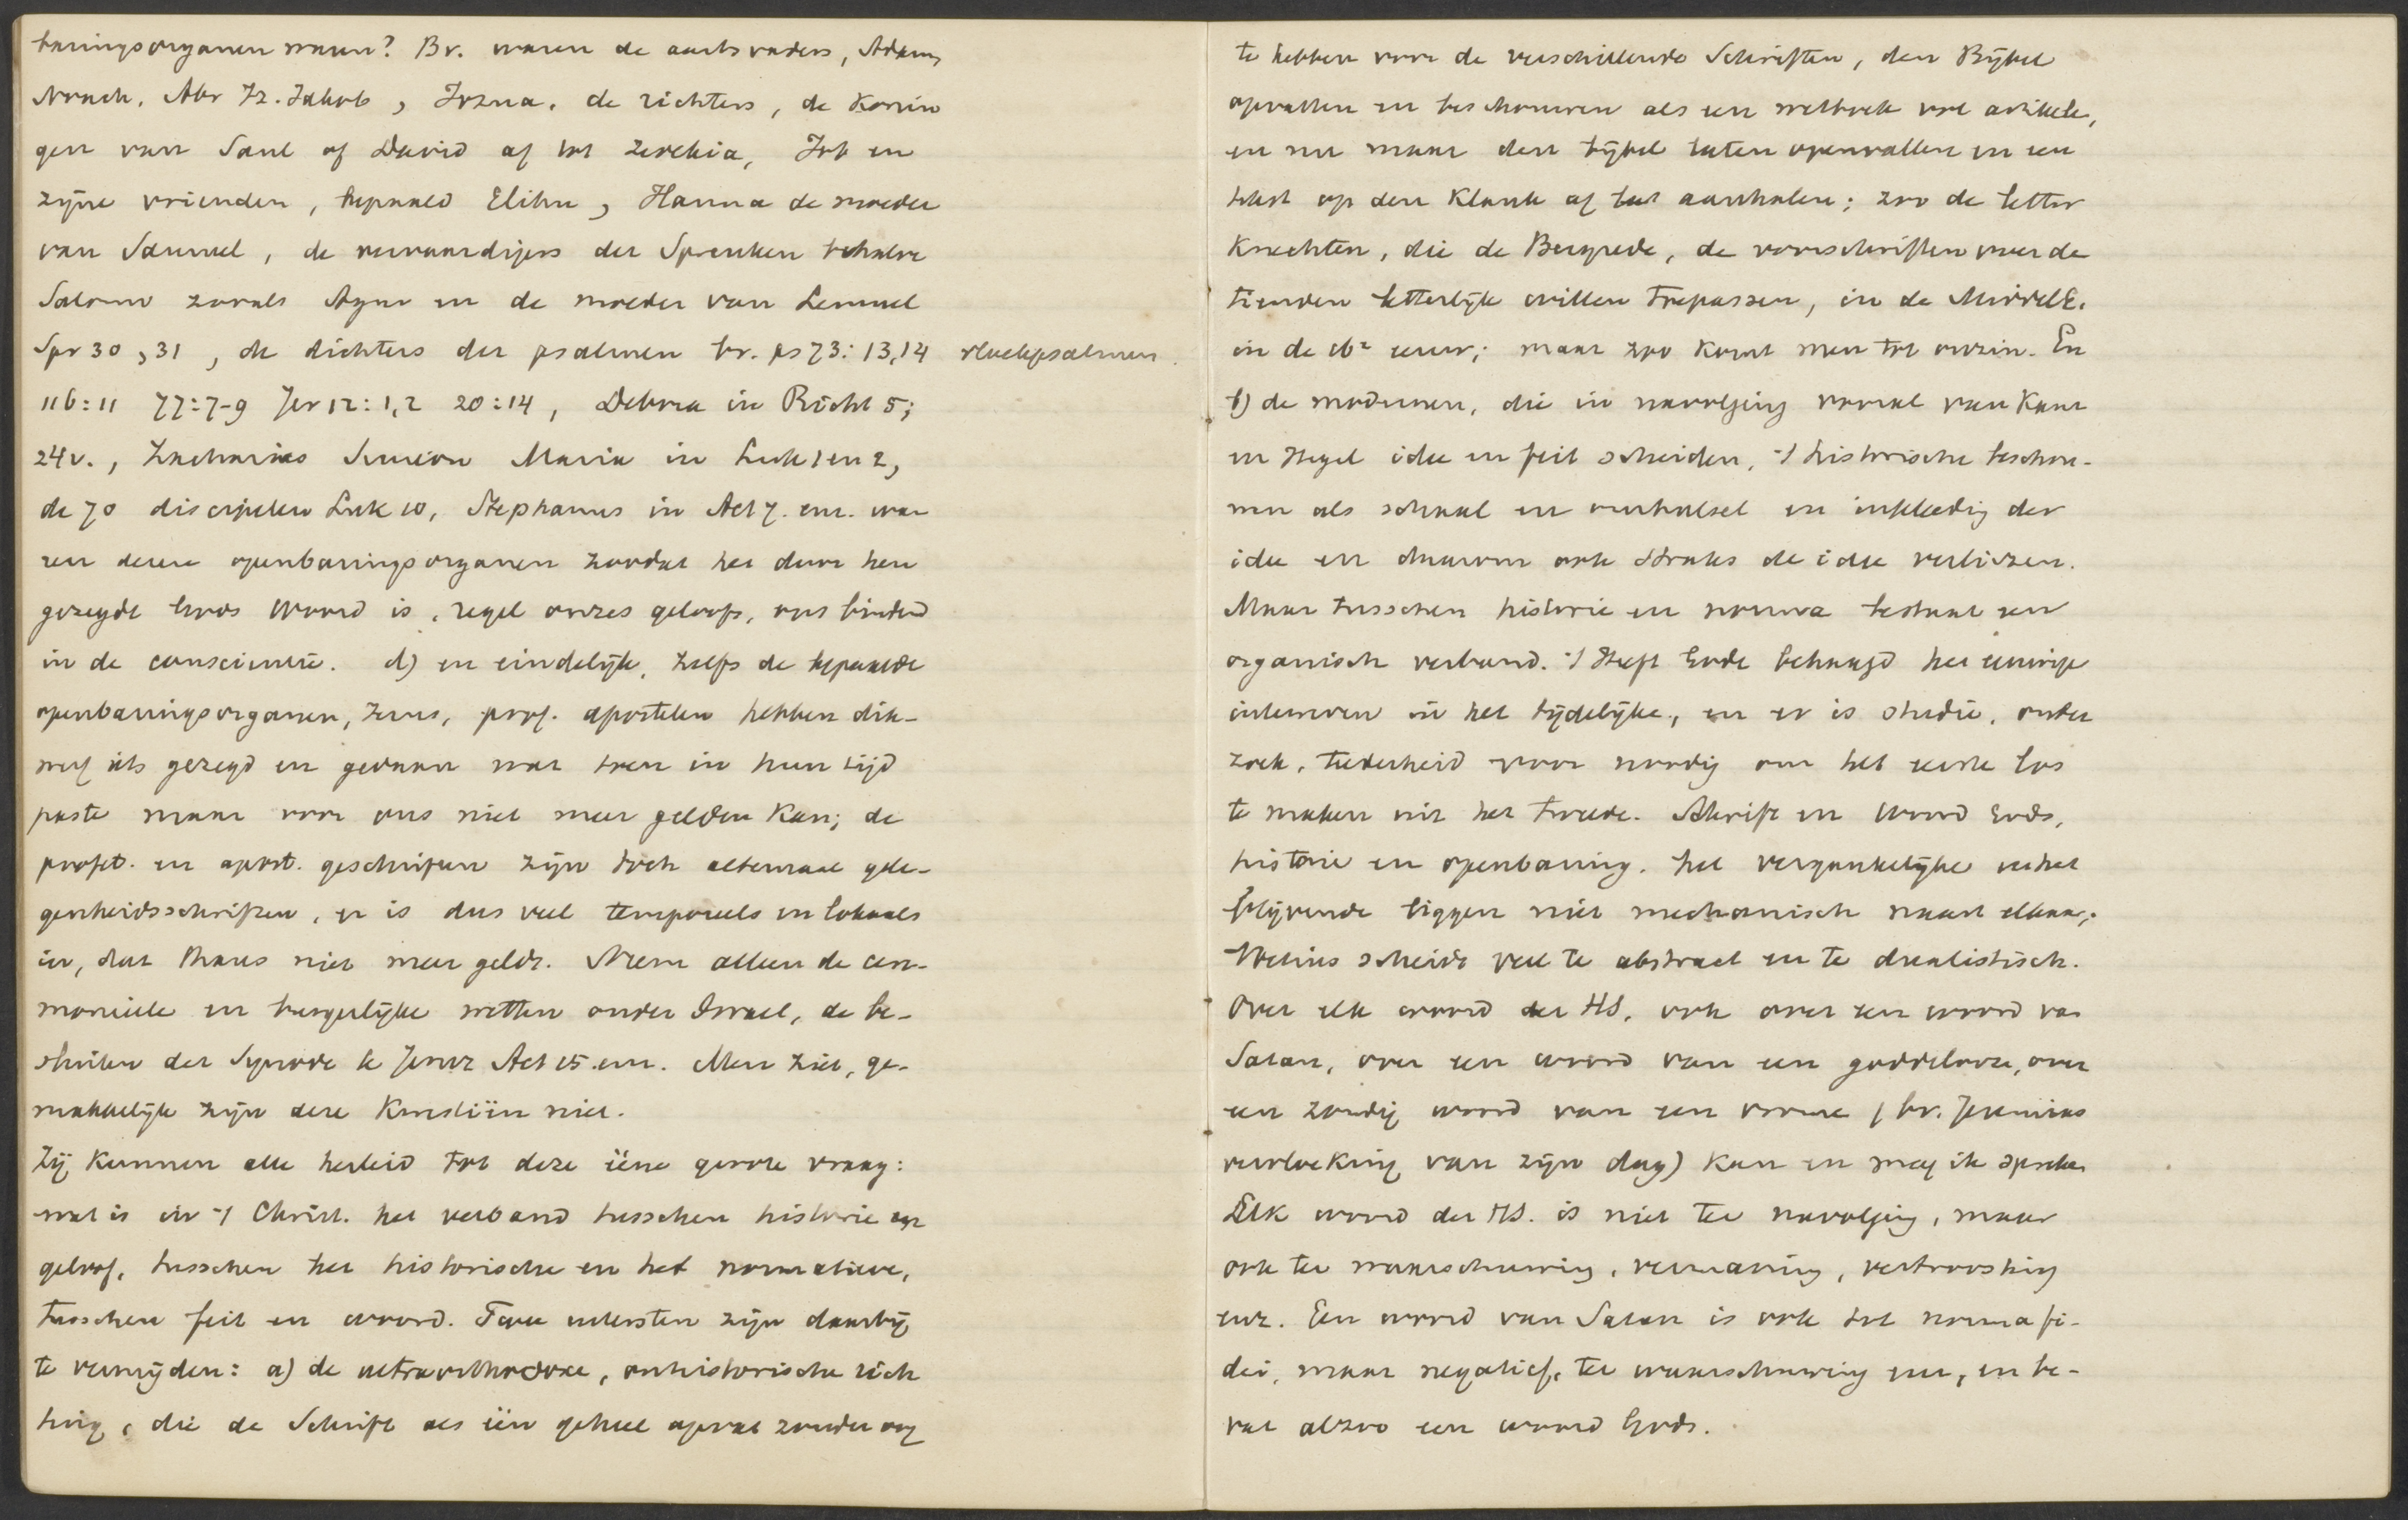 baringsorganen waren? Bv. waren de aartsvaders, Adam,
Noach, Abr Iz. Jakob, Jozua, de richters, de Konin
gen van Saul af David af tot Zedekia, Job en
zijne vrienden, bepaald Elihu, Hanna de moeder
van Samuel, de vervaardigers der Spreuken behalve
Salomo zooals Agur en de moeder van Lemuel
Spr 30, 31, de dichters der psalmen bv. ps 73:13,14 vloekpsalmen.
116:11 77:7-9 Jer 12:1,2 20:14, Debora in Richt 5;
24v., Zacharias Simeon Maria in Luk 1 en 2,
de 70 discipelen Luk 10, Stephanus in Act 7. enz. wa
ren dezen openbaringsorganen zoodat het door hen
gezegde Gods Woord is, regel onzes geloofs, ons bindend
in de conscientie. d) en eindelijk, zelfs de bepaalde
openbaringsorganen, Jezus, prof. apostelen hebben dik-
werf iets gezegd en gedaan wat toen in hun tijd
paste maar voor ons niet meer gelden Kan; de
profet. en apost. geschriften zijn toch altemaal gele-
genheidsschriften, er is dus veel temporeels en lokaals
in, dat thans niet meer geldt. Neem alleen de cere-
monieele en burgerlijke wetten onder Israel, de be-
sluiten der Synode te Jeruz Act 15 enz. Men ziet, ge-
makkelijk zijn deze Kwestiën niet.
Zij Kunnen alle herleid tot deze ééne groote vraag:
wat is in 't Christ. het verband tusschen historie en
geloof, tusschen het historische en het normatieve,
tusschen feit en woord. Twee uitersten zijn daarbij
te vermijden: a) de ultraorthodoxe, onhistorische rich
ting, die de Schrift als één geheel opvat zonder oog
te hebben voor de verschillende Schriften, den Bijbel
opvatten en beschouwen als een wetboek vol artikelen,
en nu maar den bijbel laten openvallen en een
tekst op den Klank af aanhalen; zoo de letter
Knechten, die de Bergrede, de voorschriften over de
tienden letterlijk willen toepassen, in de MiddelE.
in de 16e eeuw; maar zoo Komt men tot onzin. En
b) de modernen, die in navolging vooral van Kant
en Hegel idee en feit scheiden, 't historische beschou-
wen als schaal en omhulsel en inkleeding der
idee en daarom ook straks de idee verliezen.
Maar tusschen historie en norma bestaat een
organisch verband. 't Heeft Gode behaagd het eeuwige
inteweven in het tijdelijke, en er is studie, onder
zoek, teederheid voor noodig om het eerste los
te maken uit het tweede. Schrift en Woord Gods,
historie en openbaring, het vergankelijke en het
blijvende liggen niet mechanisch naast elkaar;
Voetius scheidt veel te abstract en te dualistisch.
Over elk woord der HS, ook over een woord van
Satan, over een woord van een goddelooze, over
een zondig woord van een vrome (bv. Jeremias
vervloeking van zijn dag) Kan en mag ik spreken
Elk woord der HS. is niet ter navolging, maar
ook ter waarschuwing, vermaning, vertroosting
enz. Een woord van Satan is ook tot norma fi-
dei, maar negatief, ter waarschuwing enz, en be-
vat alzoo een woord Gods.